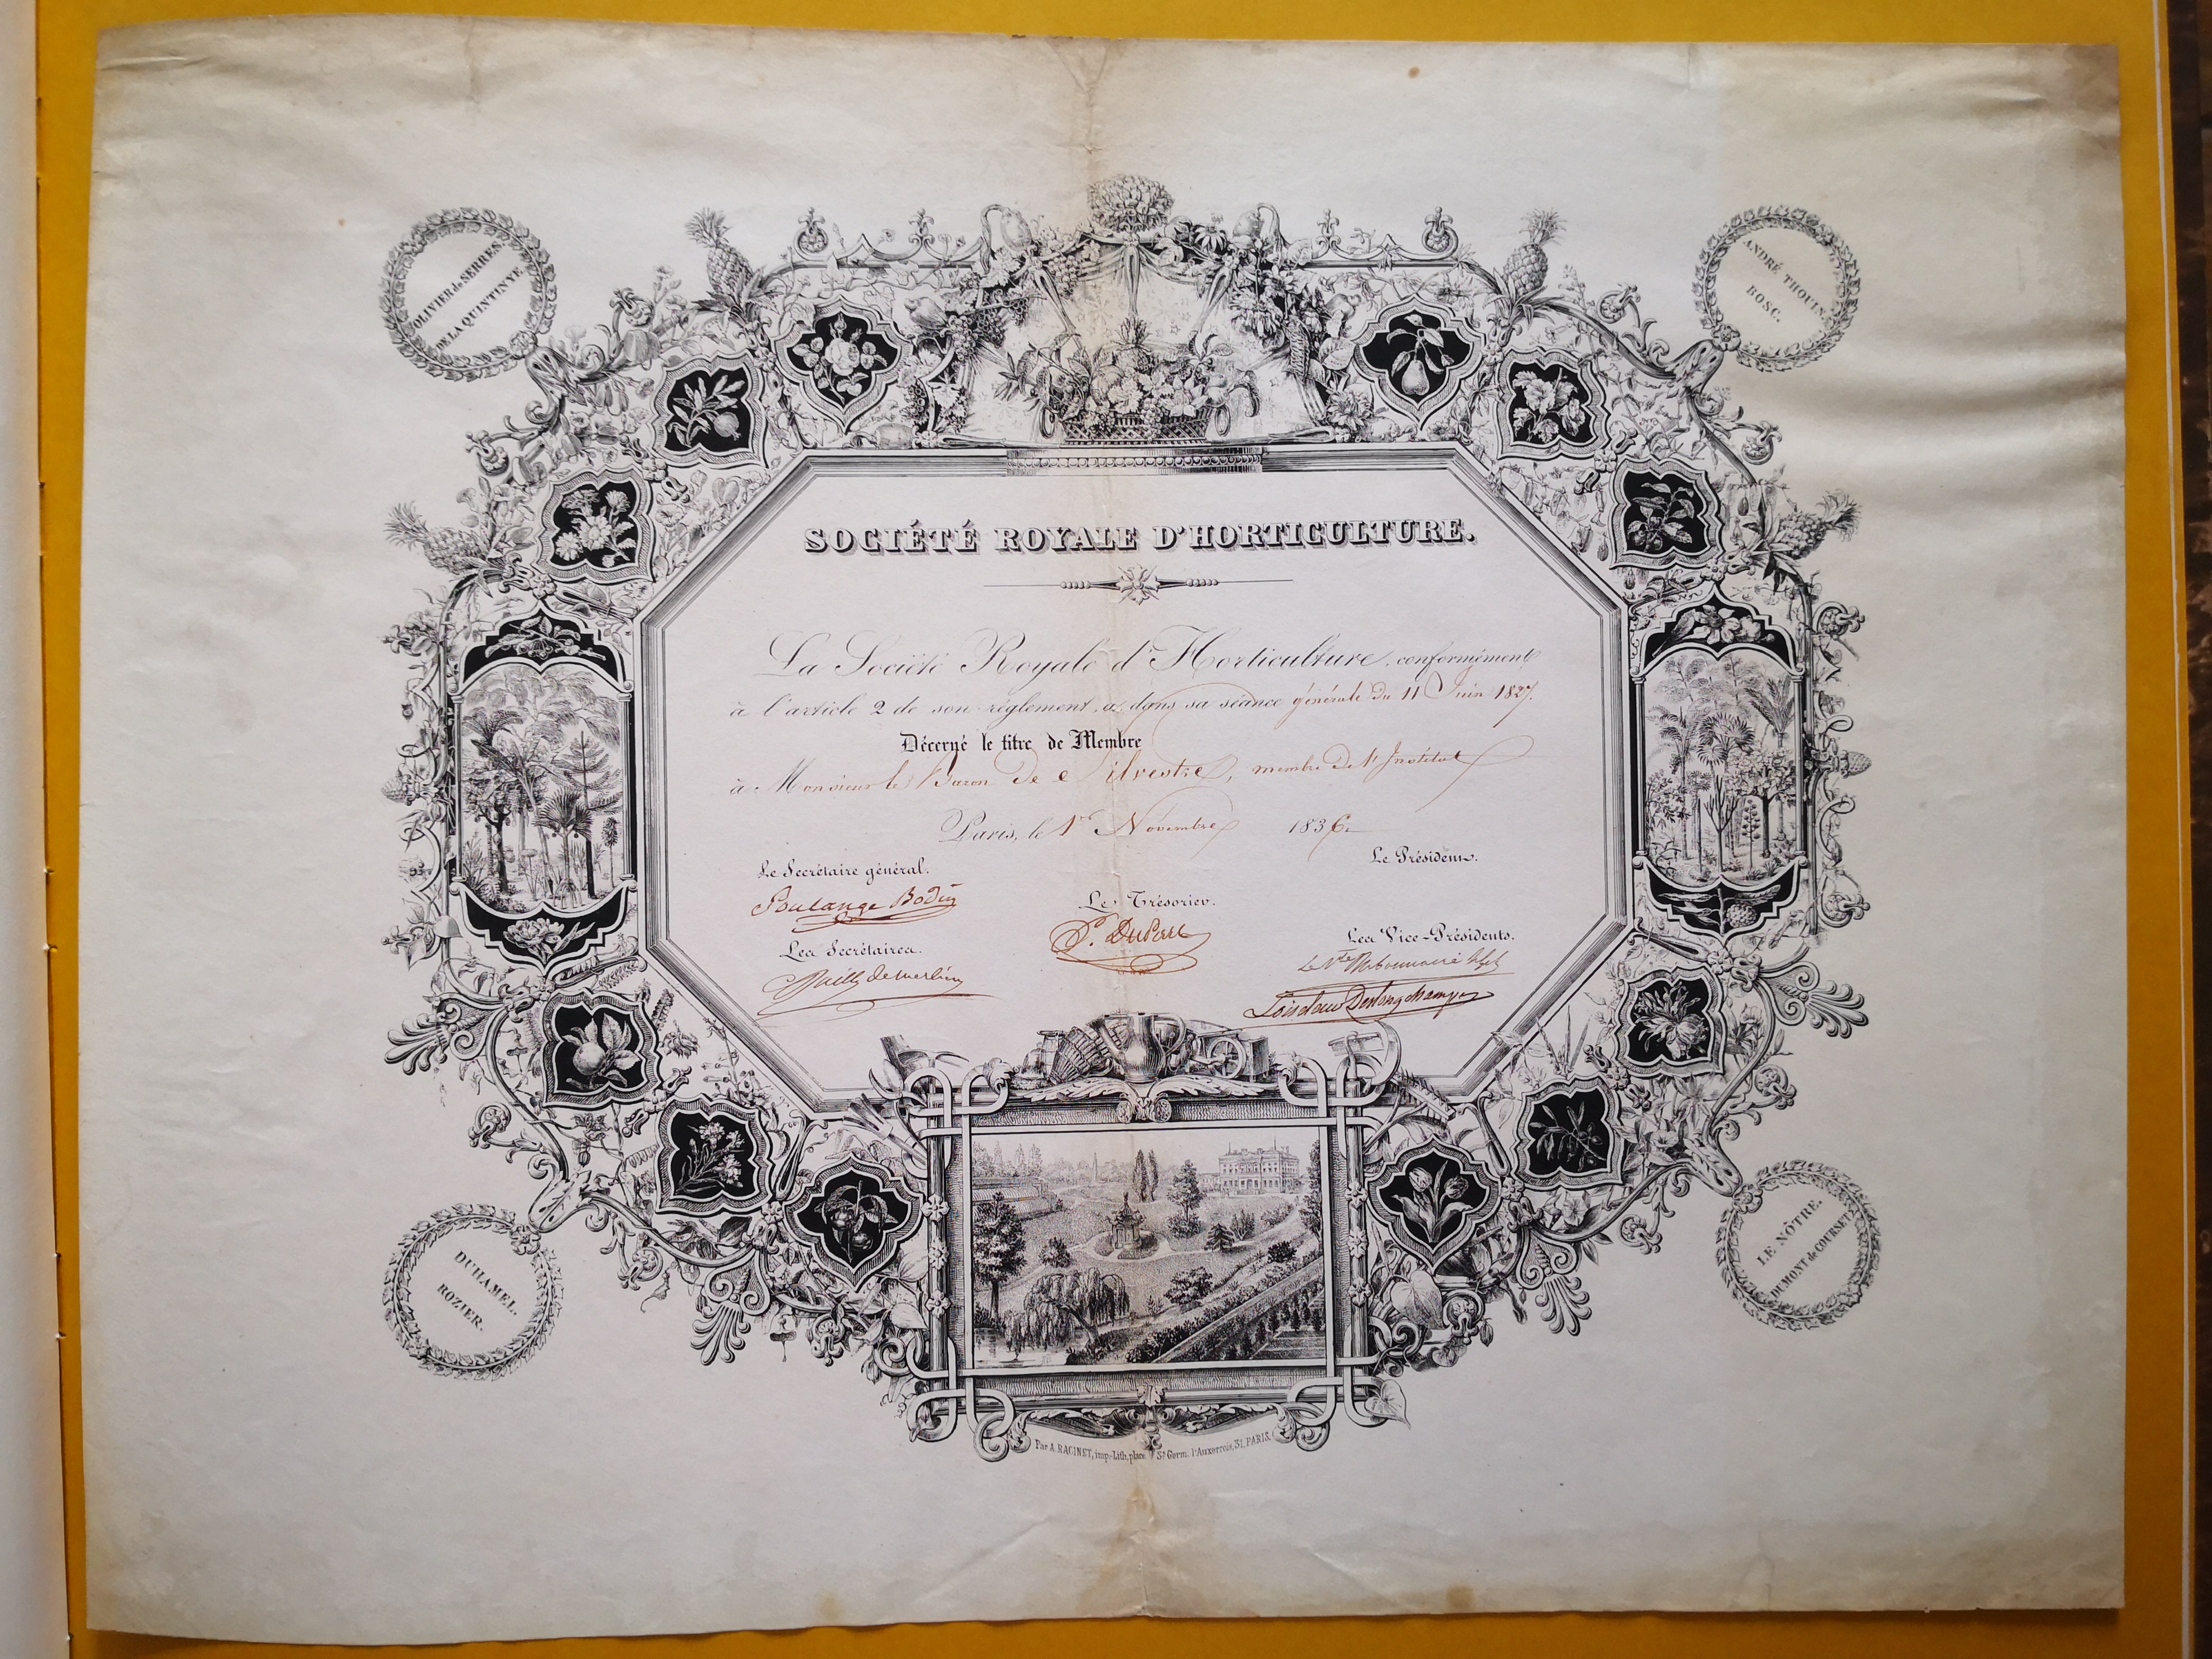 OLIVIER de SERRES.
DE LA QUINTINYE.
ANDRÉ THOUIN.
BOSC.
SOCIÉTÉ ROYALE D'HORTICULTURE.
La Société Royale d'Horticulture, conformément
à l'article 2 de son règlement, a, dans sa séance générale du 11 Juin 1827.
Décerné le titre de Membre
à Monsieur le Baron de Silvestre, membre de l'Institut
Paris, le 1er Novembre 1836.
Le Secrétaire général.
Le Président.
Soulange Bodin
Le Trésorier.
Les Secrétaires.
Les Vice-Présidents.
Bailly de Merlieux
Le Vte
Loiseleur Deslongchamps
DUHAMEL.
ROZIER.
LE NÔTRE.
DUMONT de COURSET.
Par A. RACINET, imp.-Lith. place St Germ. l'Auxerrois, 31, PARIS.